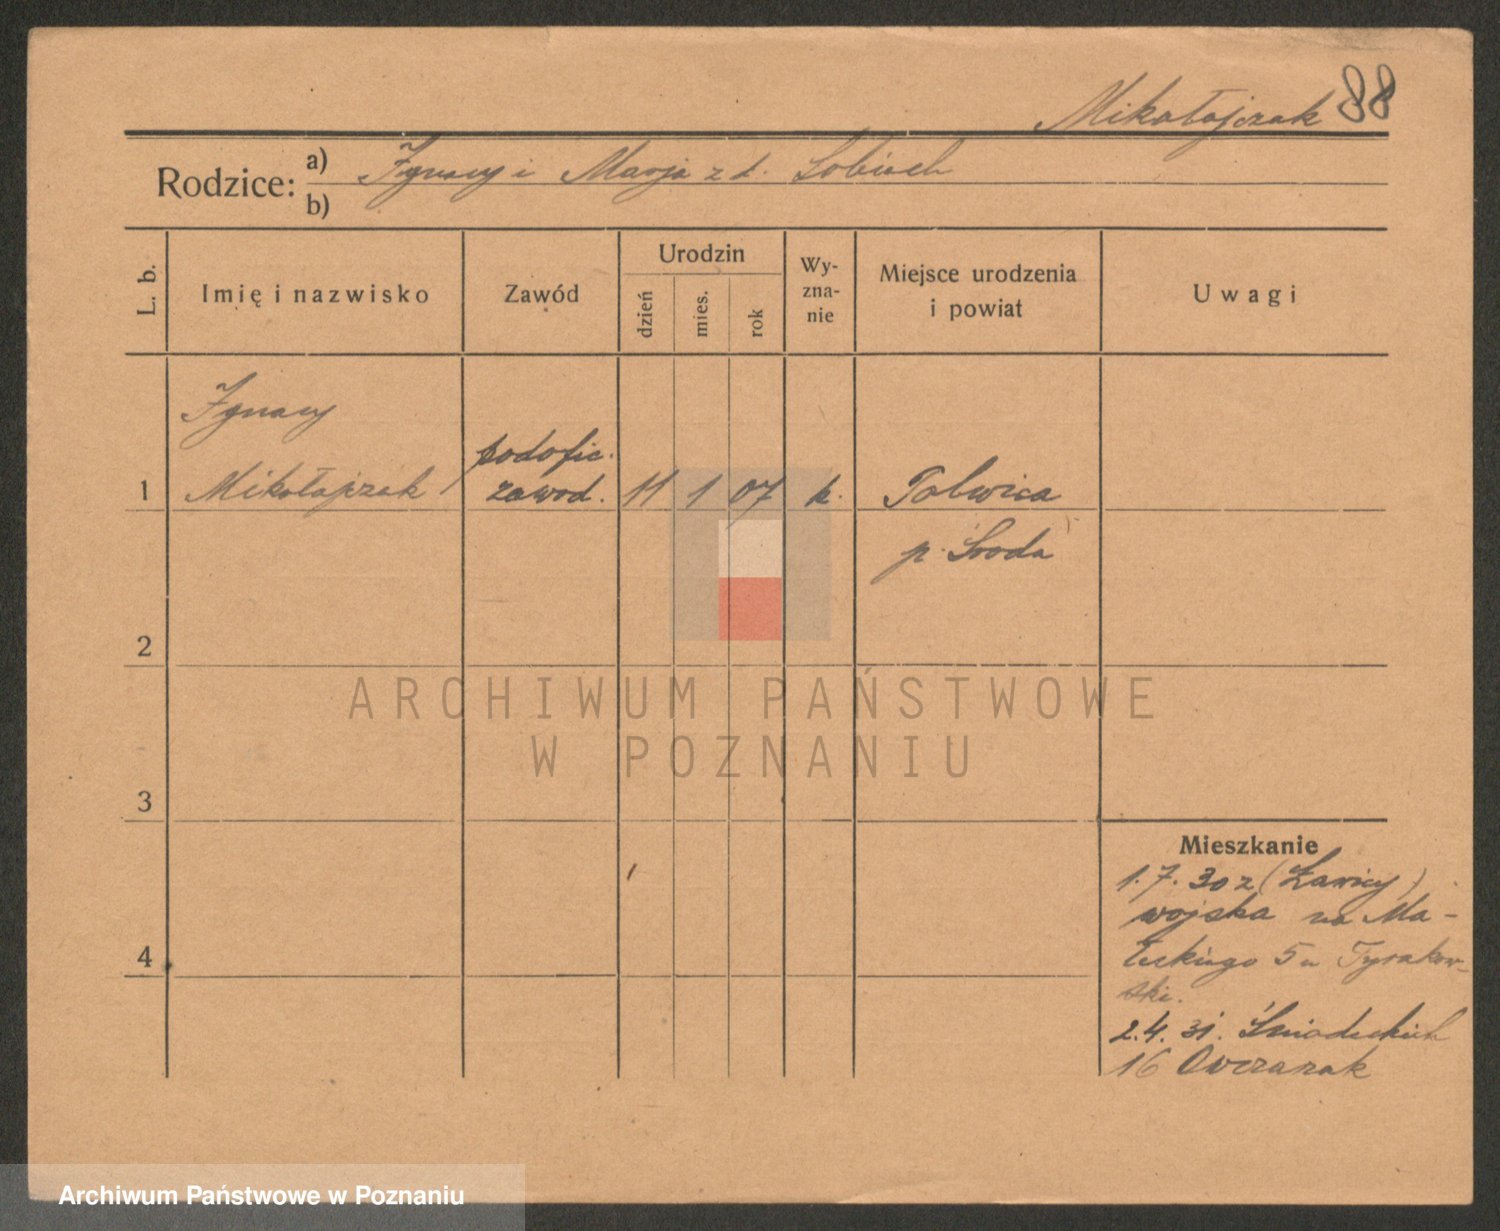 Mikołajczak 88
Rodzice: a) Ignacy i Marja z d. Sobiech
b)
L. b. Imię i nazwisko Zawód Urodzin dzień mies. rok Wy-zna-nie Miejsce urodzenia i powiat Uwagi
Ignacy
podofic.
1 Mikołajczak zawod. 11 1 07 k. Polwica
p. Środa
2
ARCHIWUM PAŃSTWOWE
W POZNANIU
3
Mieszkanie
1.7.30 z (Ławicy)
wojska na Ma-
łeckiego 5 u Tyrakow-
4
ski.
2.4.31. Śniadeckich
16 Owczarzak
Archiwum Państwowe w Poznaniu